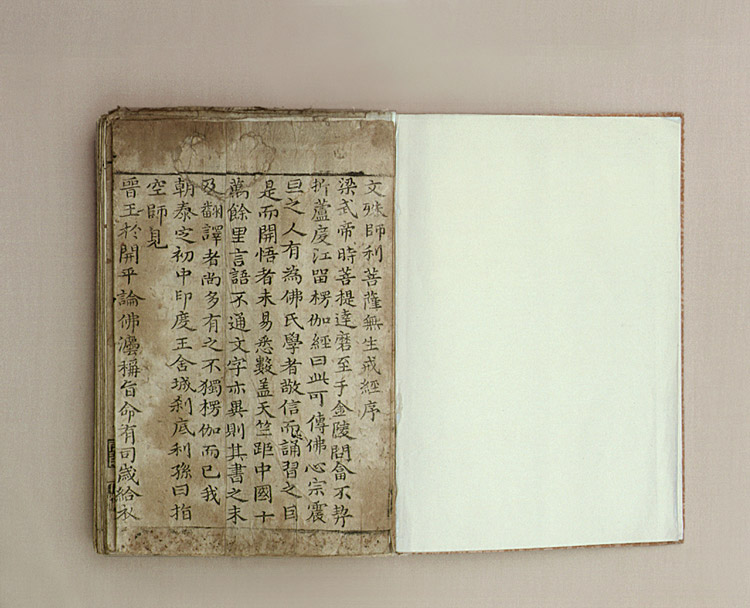 文殊師利菩薩無生戒經序
梁武帝時菩提達磨至于金陵問畣不契
折蘆度江留楞伽經曰此可傳佛心宗震
旦之人有為佛氏學者敬信而誦習之因
是而開悟者未易悉數盖天竺距中國十
萬餘里言語不通文字亦異則其書之未
及翻譯者尚多有之不獨楞伽而已我
朝泰定初中印度王舍城刹底利孫曰指
空師見
晉王於開平論佛灋稱旨命有司歲給衣